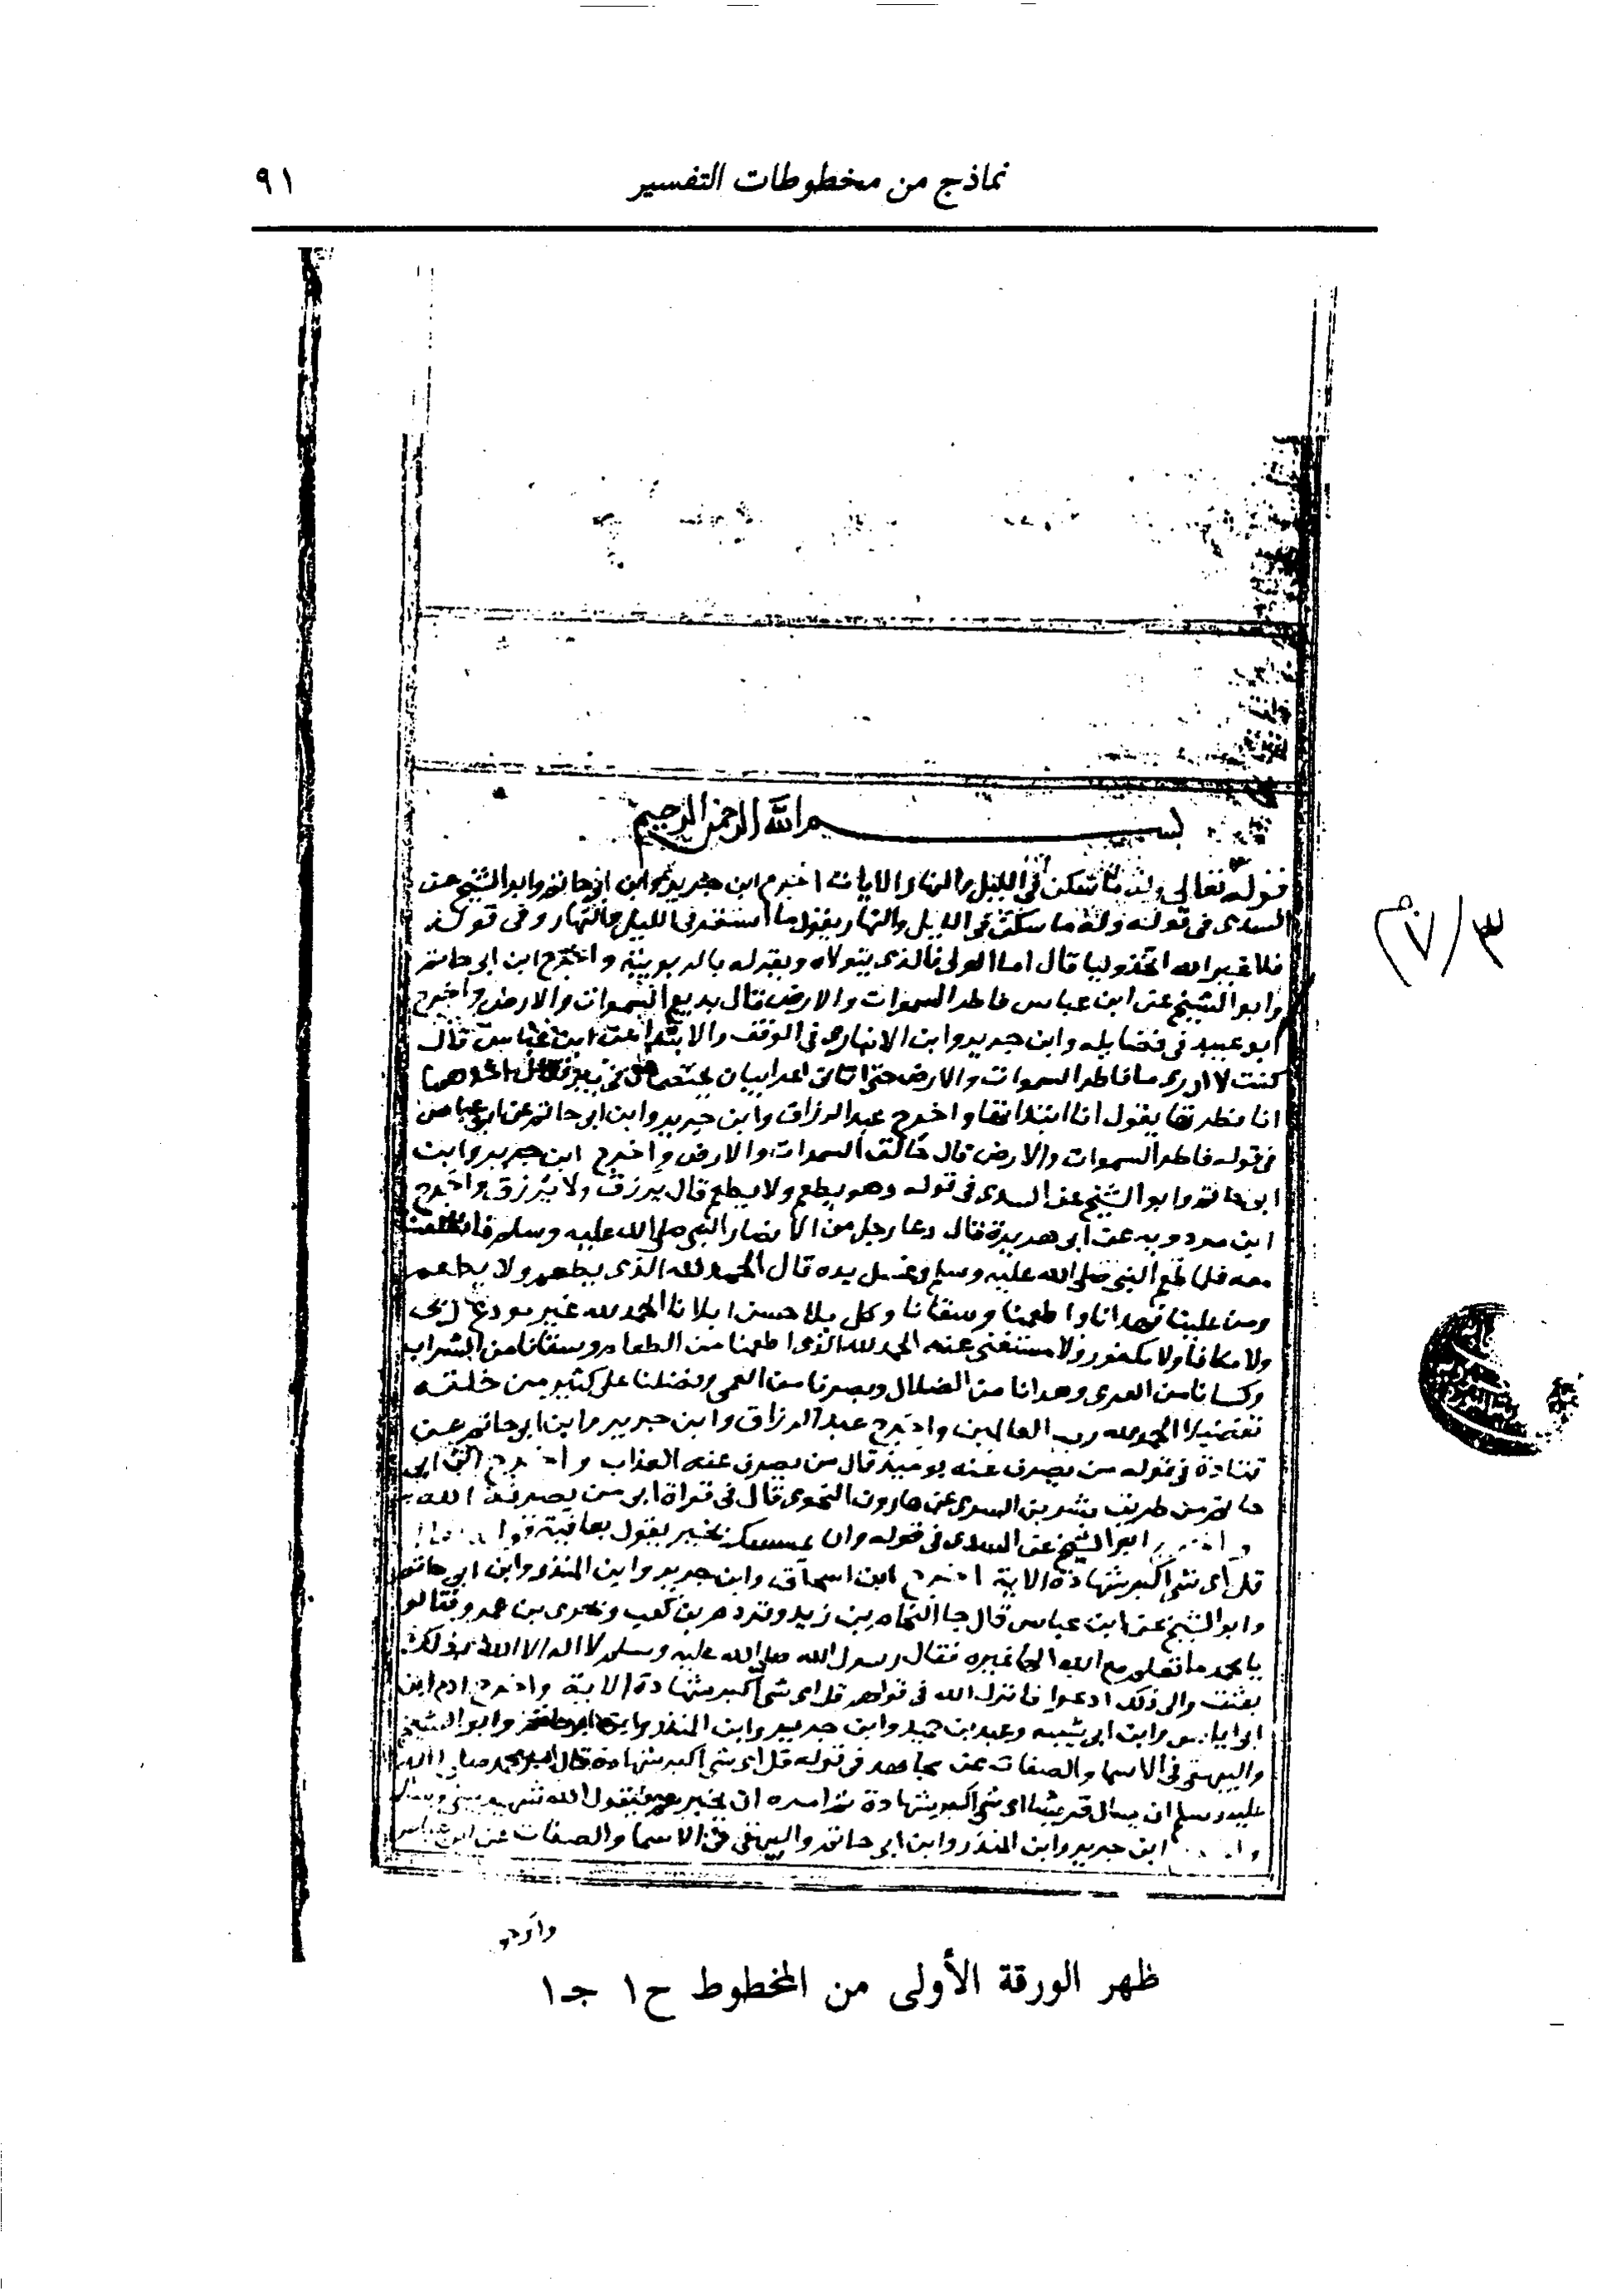 نماذج من مخطوطات التفسير
٩١
بسم الله الرحمن الرحيم
قوله تعالى وله ما سكن في الليل والنهار الايات اخرج ابن جرير وابن ابي حاتم وابو الشيخ عن
السدى في قوله وله ما سكن في الليل والنهار يقول ما استقر في الليل والنهار وفي قوله
قل اغير الله اتخذ وليا قال اما الولى فالذى يتولاه ويقر له بالربوبية واخرج ابن ابى حاتم
وابو الشيخ عن ابن عباس فاطر السموات والارض قال بديع السموات والارض واخرج
ابو عبيد فى فضايله وابن جرير وابن الانبارى فى الوقف والابتدا عن ابن عباس قال
كنت لا ادرى ما فاطر السموات والارض حتى اتانى اعرابيان يختصمان فى بير فقال احدهما
انا فطرتها يقول انا ابتداتها واخرج عبد الرزاق وابن جرير وابن ابى حاتم عن ابن عباس
فى قوله فاطر السموات والارض قال خالق السموات والارض واخرج ابن جرير وابن
ابى حاتم وابو الشيخ عن السدى فى قوله وهو يطعم ولا يطعم قال يرزق ولا يرزق واخرج
ابن مردويه عن ابى هريرة قال دعا رجل من الانصار النبى صلى الله عليه وسلم فانطلقنا
معه فلما طعم النبى صلى الله عليه وسلم وغسل يده قال الحمد لله الذى يطعم ولا يطعم
ومن علينا فهدانا واطعمنا وسقانا وكل بلا حسن ابلانا الحمد لله غير مودع ربى
ولا مكافا ولا مكفور ولا مستغنى عنه الحمد لله الذى اطعمنا من الطعام وسقانا من الشراب
وكسانا من العرى وهدانا من الضلال وبصرنا من العمى وفضلنا على كثير من خلقه
تفضيلا الحمد لله رب العالمين واخرج عبد الرزاق وابن جرير وابن ابى حاتم عن
قتادة فى قوله من يصرف عنه يوميذ قال من يصرف عنه العذاب واخرج ابن ابى
حاتم من طريق بشر بن السرى عن هارون النحوى قال فى قراة ابى من يصرفه الله
واخرج ابو الشيخ عن السدى فى قوله وان يمسسك بخير يقول بعافية قوله تعالى
قل اى شى اكبر شهادة الاية اخرج ابن اسحاق وابن جرير وابن المنذر وابن ابى حاتم
وابو الشيخ عن ابن عباس قال جا النحام بن زيد وقردم بن كعب وبحرى بن عمرو فقالوا
يا محمد ما تعلم مع الله الها غيره فقال رسول الله صلى الله عليه وسلم لا اله الا الله بذلك
بعثت والى ذلك ادعوا فانزل الله فى قولهم قل اى شى اكبر شهادة الاية واخرج ادم ابن
ابى اياس وابن ابى شيبه وعبد بن حميد وابن جرير وابن المنذر وابن ابى حاتم وابو الشيخ
والبيهقى فى الاسما والصفات عن مجاهد فى قوله قل اى شى اكبر شهادة قال امر محمد صلى الله
عليه وسلم ان يسال قريشا اى شى اكبر شهادة ثم امره ان يخبرهم فيقول الله شهيد بينى وبينكم
واخرج ابن جرير وابن المنذر وابن ابى حاتم والبيهقى فى الاسما والصفات عن ابن عباس
ظهر الورقة الأولى من المخطوط ح١ جـ١